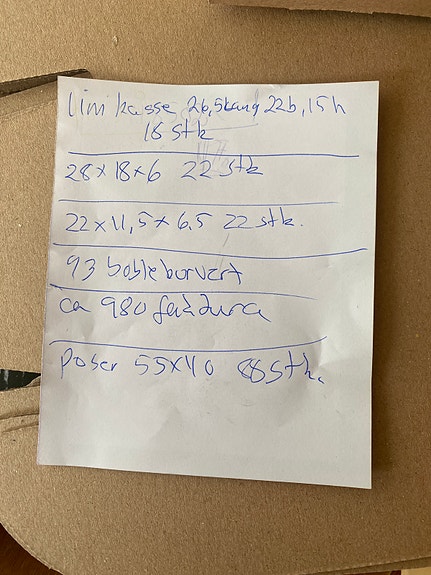 lim kasse 26,5 lang 22b, 15h
16 stk
28x18x6 22 stk
22x11,5x6.5 22 stk.
93 boblekuvert
ca 980 faktura
poser 55x40 88 stk.